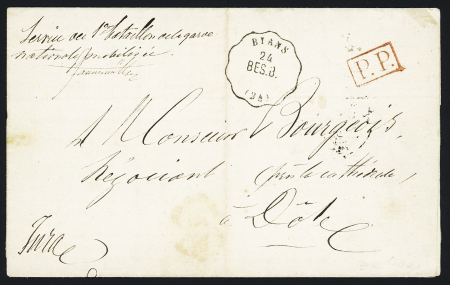 Service du 1er bataillon de la garde
nationale mobilisée
BYANS
24
BES.B.
(24)
P.P.
A Monsieur Bourgeois,
Négociant près la cathédrale,
à Dôle
Jura